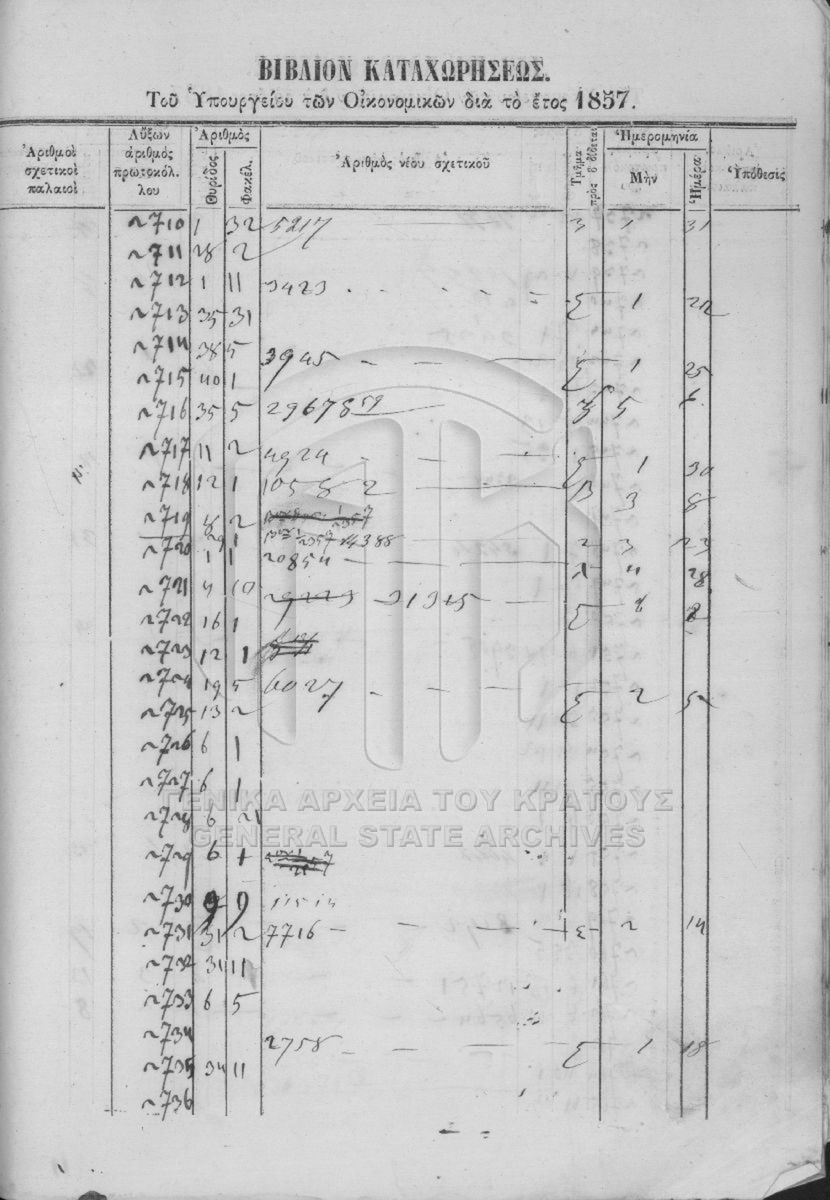 ΒΙΒΛΙΟΝ ΚΑΤΑΧΩΡΗΣΕΩΣ.
Τοῦ Ὑπουργείου τῶν Οἰκονομικῶν διὰ τὸ ἔτος 1857.
Ἀριθμοὶ σχετικοὶ παλαιοὶ
Αὔξων ἀριθμὸς πρωτοκόλλου
Ἀριθμὸς
Θυρίδος.
Φακέλ.
Ἀριθμὸς νέου σχετικοῦ
Τμῆμα πρὸς ὃ δίδεται
Ἡμερομηνία
Μὴν
Ἡμέρα
Ὑπόθεσις
2710 1 32 5217 3 1 31
2711 28 2
2712 1 11 3423 Σ 1 22
2713 35 31
2714 38 5 3945 Σ 1 25
2715 40 1
2716 35 5 29678 59 5 6
2717 11 2 4924 Σ 1 30
2718 12 1 10582 Β 3 8
2719 8 2
2720 1 1 20854 28
2721 4 10 31315 Σ 2
2722 16 1
2723 12 1
2724 19 5 6027 Σ 2 5
2725 13 2
2726 6 1
2727 6 1
2728 6 21
2729 6 1
2730 9 9
2731 31 2 7716 Σ 2 14
2732 34 11
2733 6 5
2734 2758 Σ 1 18
2735 34 11
2736
ΓΕΝΙΚΑ ΑΡΧΕΙΑ ΤΟΥ ΚΡΑΤΟΥΣ
GENERAL STATE ARCHIVES